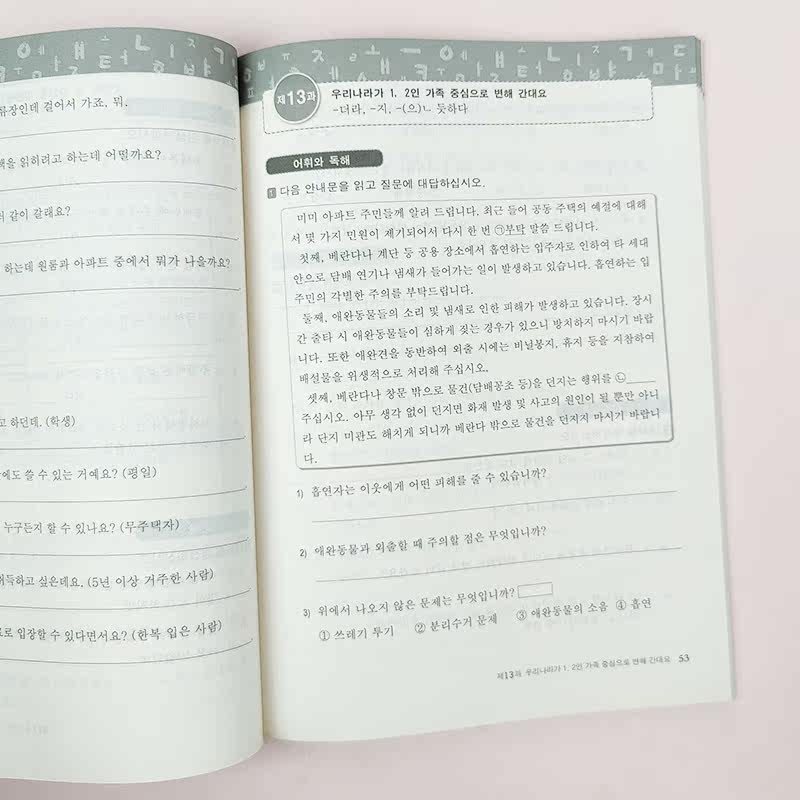 류장인데 걸어서 가죠, 뭐.
책을 읽히려고 하는데 어떨까요?
같이 갈래요?
하는데 원룸과 아파트 중에서 뭐가 나을까요?
고 하던데. (학생)
에도 쓸 수 있는 거예요? (평일)
누구든지 할 수 있나요? (무주택자)
취득하고 싶은데요. (5년 이상 거주한 사람)
료로 입장할 수 있다면서요? (한복 입은 사람)
제13과
우리나라가 1, 2인 가족 중심으로 변해 간대요
-더라, -지, -(으)ㄴ 듯하다
어휘와 독해
1 다음 안내문을 읽고 질문에 대답하십시오.
미미 아파트 주민들께 알려 드립니다. 최근 들어 공동 주택의 예절에 대해
서 몇 가지 민원이 제기되어서 다시 한 번 ㉠부탁 말씀 드립니다.
첫째, 베란다나 계단 등 공용 장소에서 흡연하는 입주자로 인하여 타 세대
안으로 담배 연기나 냄새가 들어가는 일이 발생하고 있습니다. 흡연하는 입
주민의 각별한 주의를 부탁드립니다.
둘째, 애완동물들의 소리 및 냄새로 인한 피해가 발생하고 있습니다. 장시
간 출타 시 애완동물들이 심하게 짖는 경우가 있으니 방치하지 마시기 바랍
니다. 또한 애완견을 동반하여 외출 시에는 비닐봉지, 휴지 등을 지참하여
배설물을 위생적으로 처리해 주십시오.
셋째, 베란다나 창문 밖으로 물건(담배꽁초 등)을 던지는 행위를 ㉡_____
주십시오. 아무 생각 없이 던지면 화재 발생 및 사고의 원인이 될 뿐만 아니
라 단지 미관도 해치게 되니까 베란다 밖으로 물건을 던지지 마시기 바랍니
다.
1) 흡연자는 이웃에게 어떤 피해를 줄 수 있습니까?
2) 애완동물과 외출할 때 주의할 점은 무엇입니까?
3) 위에서 나오지 않은 문제는 무엇입니까?
① 쓰레기 투기 ② 분리수거 문제 ③ 애완동물의 소음 ④ 흡연
제13과 우리나라가 1, 2인 가족 중심으로 변해 간대요 53